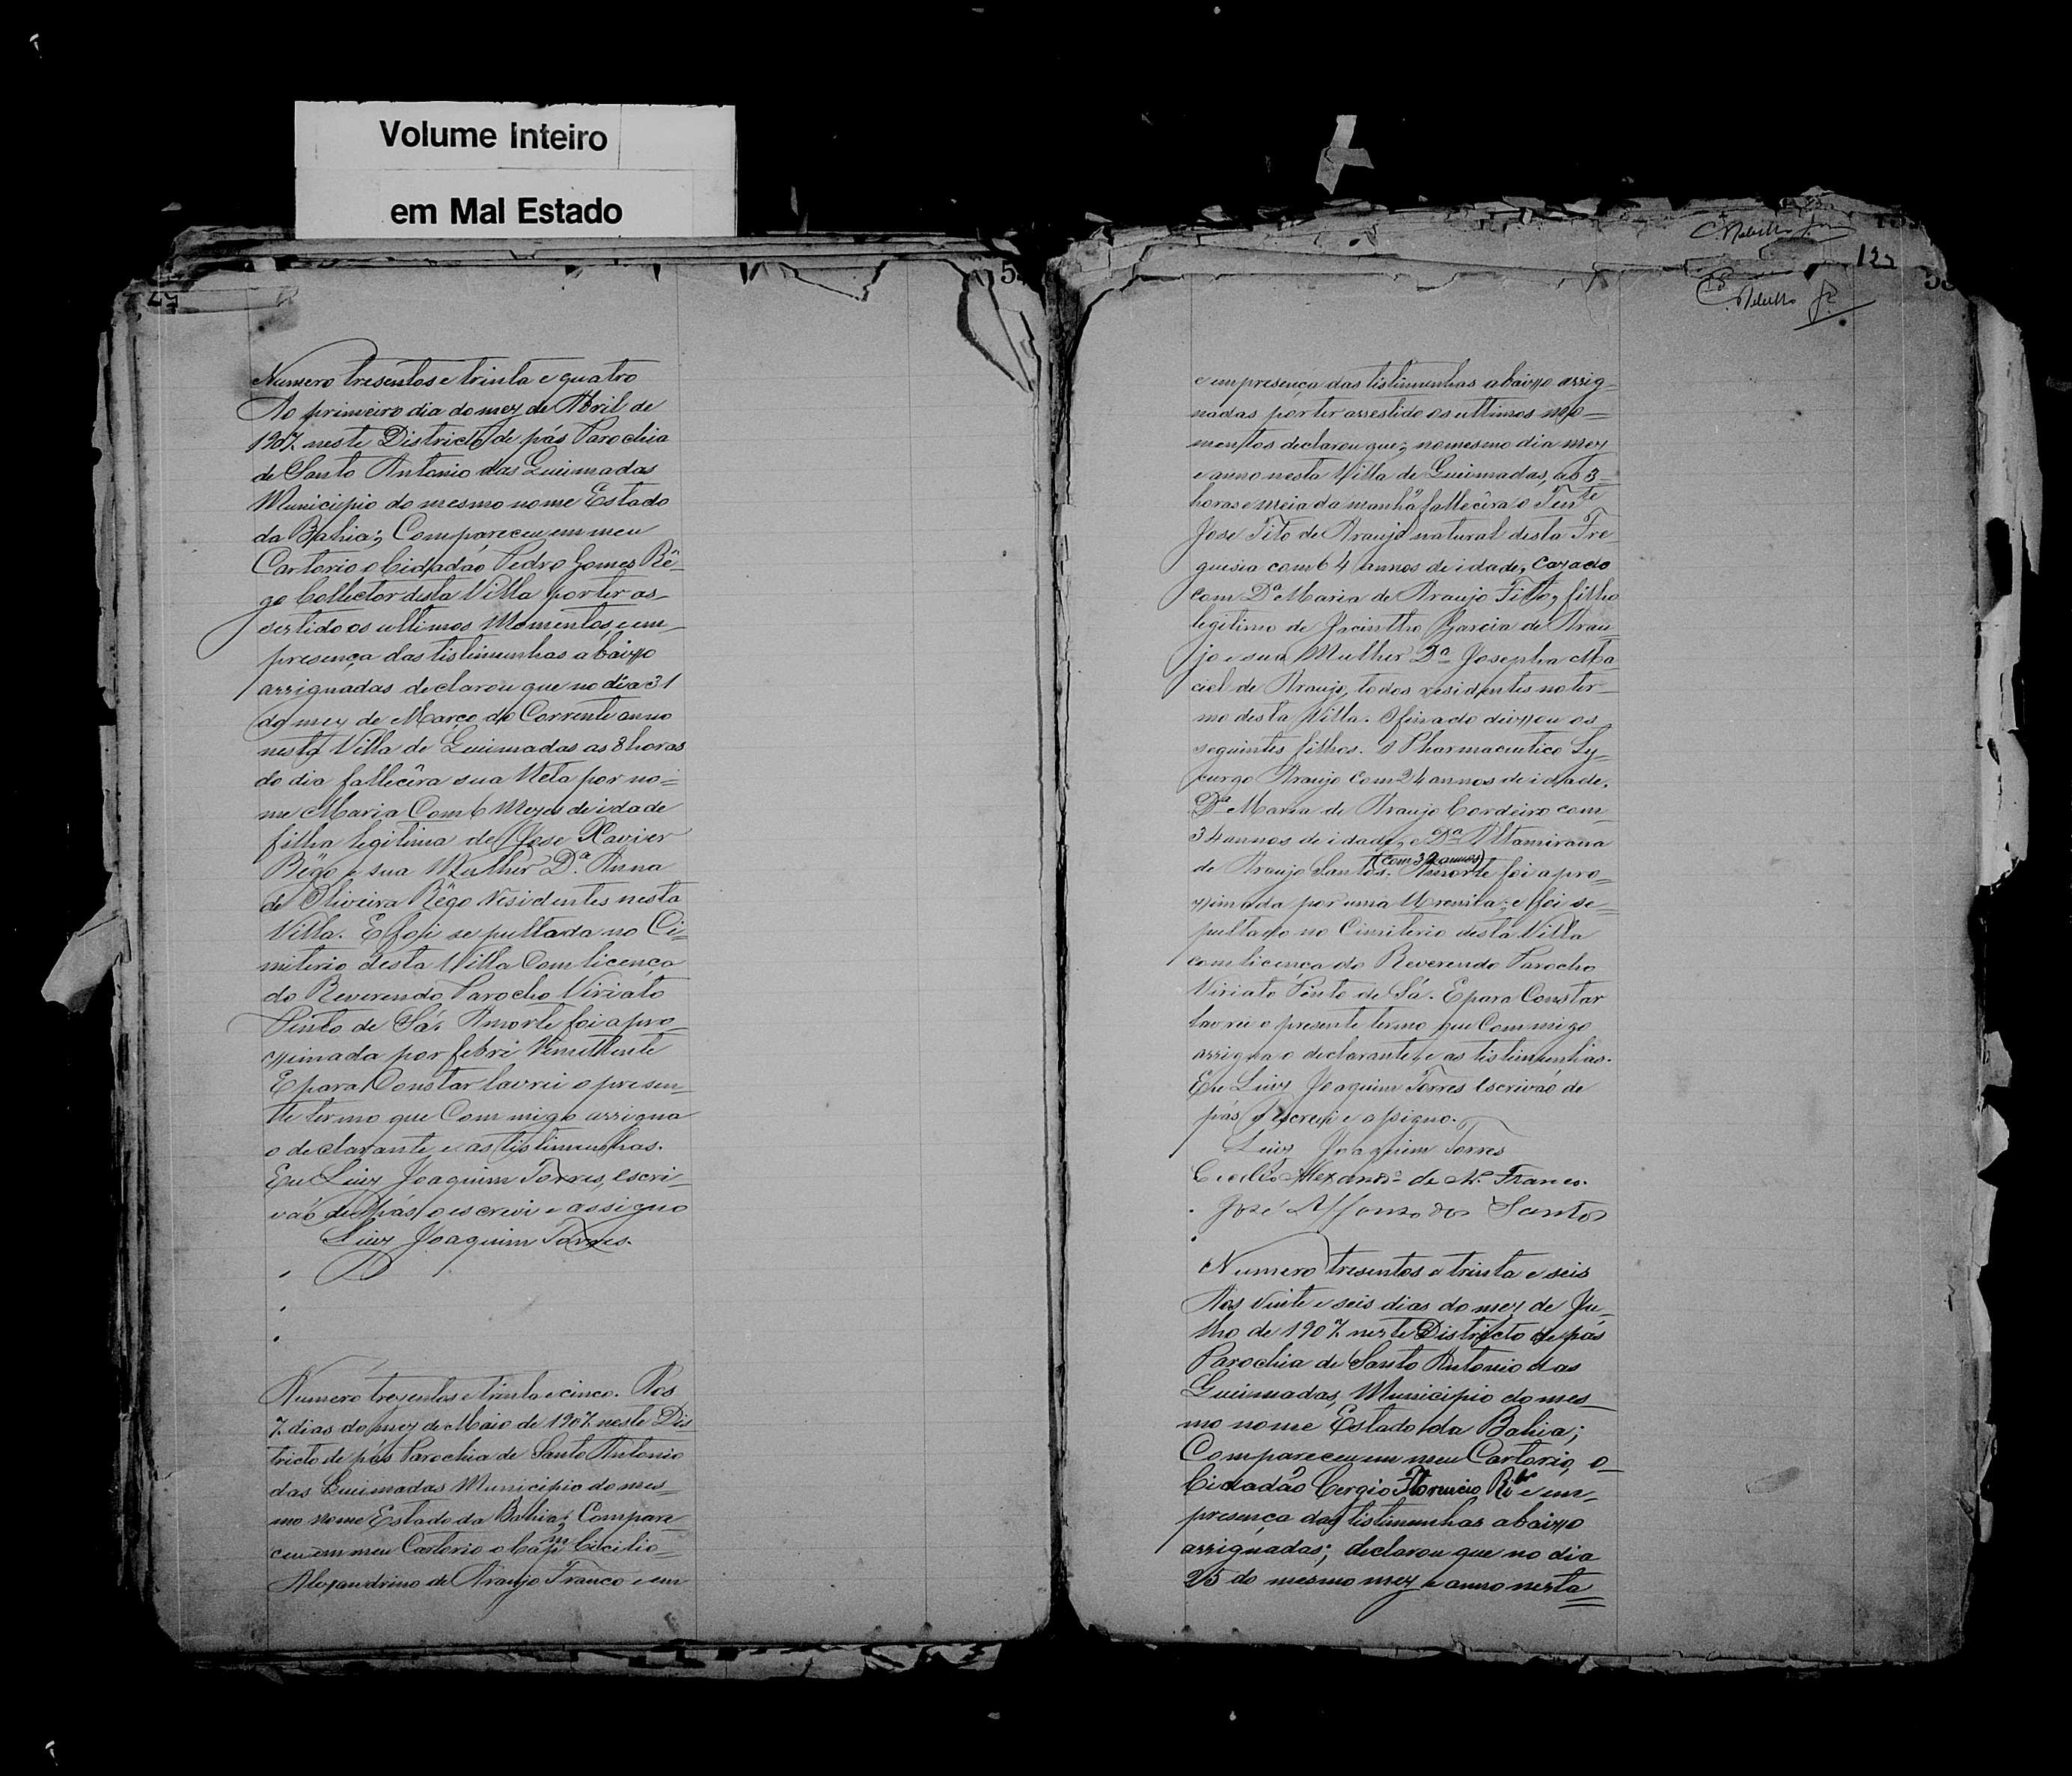 Volume Inteiro
em Mal Estado
27
Numero tresentos e trinta e quatro
Ao primeiro dia do mez de Abril de
1907 neste Districto de pás Parochia
de Santo Antonio das Queimadas
Municipio do mesmo nome Estado
da Bahia; Compareceu em meu
Cartorio o Cidadão Pedro Gomes Rê-
go Collector desta Villa por ter as-
sestido os ultimos Momentos, e em
presença das tistimunhas abaixo
assignadas declarou que no dia 31
do mez de Março do Corrente anno
nesta Villa de Queimadas as 8 horas
do dia fallecêra sua Neta por no=
me Maria Com 6 Mezes de idade
filha legitima de Jose Xavier
Rêgo e sua Mulher D.ª Anna
de Oliveira Rêgo Residentes nesta
Villa. E foi sepultada no Ci=
miterio desta Villa Com licença
do Reverendo Parocho Viriato
Pinto de Sá. A morte foi apro-
ximada por febri Remittente
E para Constar lavrei o presen-
te termo que Commigo assigna
o declarante e as tistimunhas.
Eu Luiz Joaquim Torres, Escri-
vão de pás o escrevi e assigno
Luiz Joaquim Torres.
Numero trezentos e trinta e cinco. Aos
7 dias do mez de Maio de 1907 neste Dis
tricto de pás Parochia de Santo Antonio
das Queimadas Municipio do mes-
mo nome Estado da Bahia; Compare-
ceu em meu Cartorio o Capm Cicilio=
Alexandrino de Araujo Franco e em
123
e em presença das tistimunhas abaixo assig-
nadas por ter assestido os ultimos mo-
mentos declarou que; no mesmo dia mez
e anno nesta Villa de Queimadas, as 3=
horas e meia da manhã fallecêra o Tente
Jose Tito de Araujo natural desta Fre-
guesia com 64 annos de idade, Cazado
com Dª Maria de Araujo Tito, filho
legitimo de Jacintho Garcia de Arau
jo e sua Mulher Dª Josepha Ma
ciel de Araujo, todos residentes no ter-
mo desta Villa. O finado dixou os
seguintes filhos. O Pharmaceutico Ly-
curgo Araujo Com 24 annos de idade.
Dª Maria de Araujo Cordeiro com
34 annos de idade, e Dª Altamirana
(com 32 annos)
de Araujo Santos. A morte foi apro=
ximada por uma Uremia; e foi se=
pultado no Cimiterio desta Villa
com licença do Reverendo Parocho
Viriato Pinto de Sá. E para Constar
lavrei o presente termo que Commigo
assigna o declarante, e as tistimunhas.
Eu Luiz Joaquim Torres Escrivão de
pás o Escrevi e assigno.
Luiz Joaquim Torres
de Franco.
José Affonso dos Santos
Numero tresentos e trinta e seis
Aos vinte e seis dias do mez de Ju-
lho de 1907 neste Districto de pás
Parochia de Santo Antonio das
Queimadas, Municipio do mes-
mo nome Estado da Bahia;
Compareceu em meu Cartorio, o
Cidadão Cergio Florencio Rib.º e em-
presença das tistimunhas abaixo
assignadas; declarou que no dia
25 do mesmo mez e anno nesta